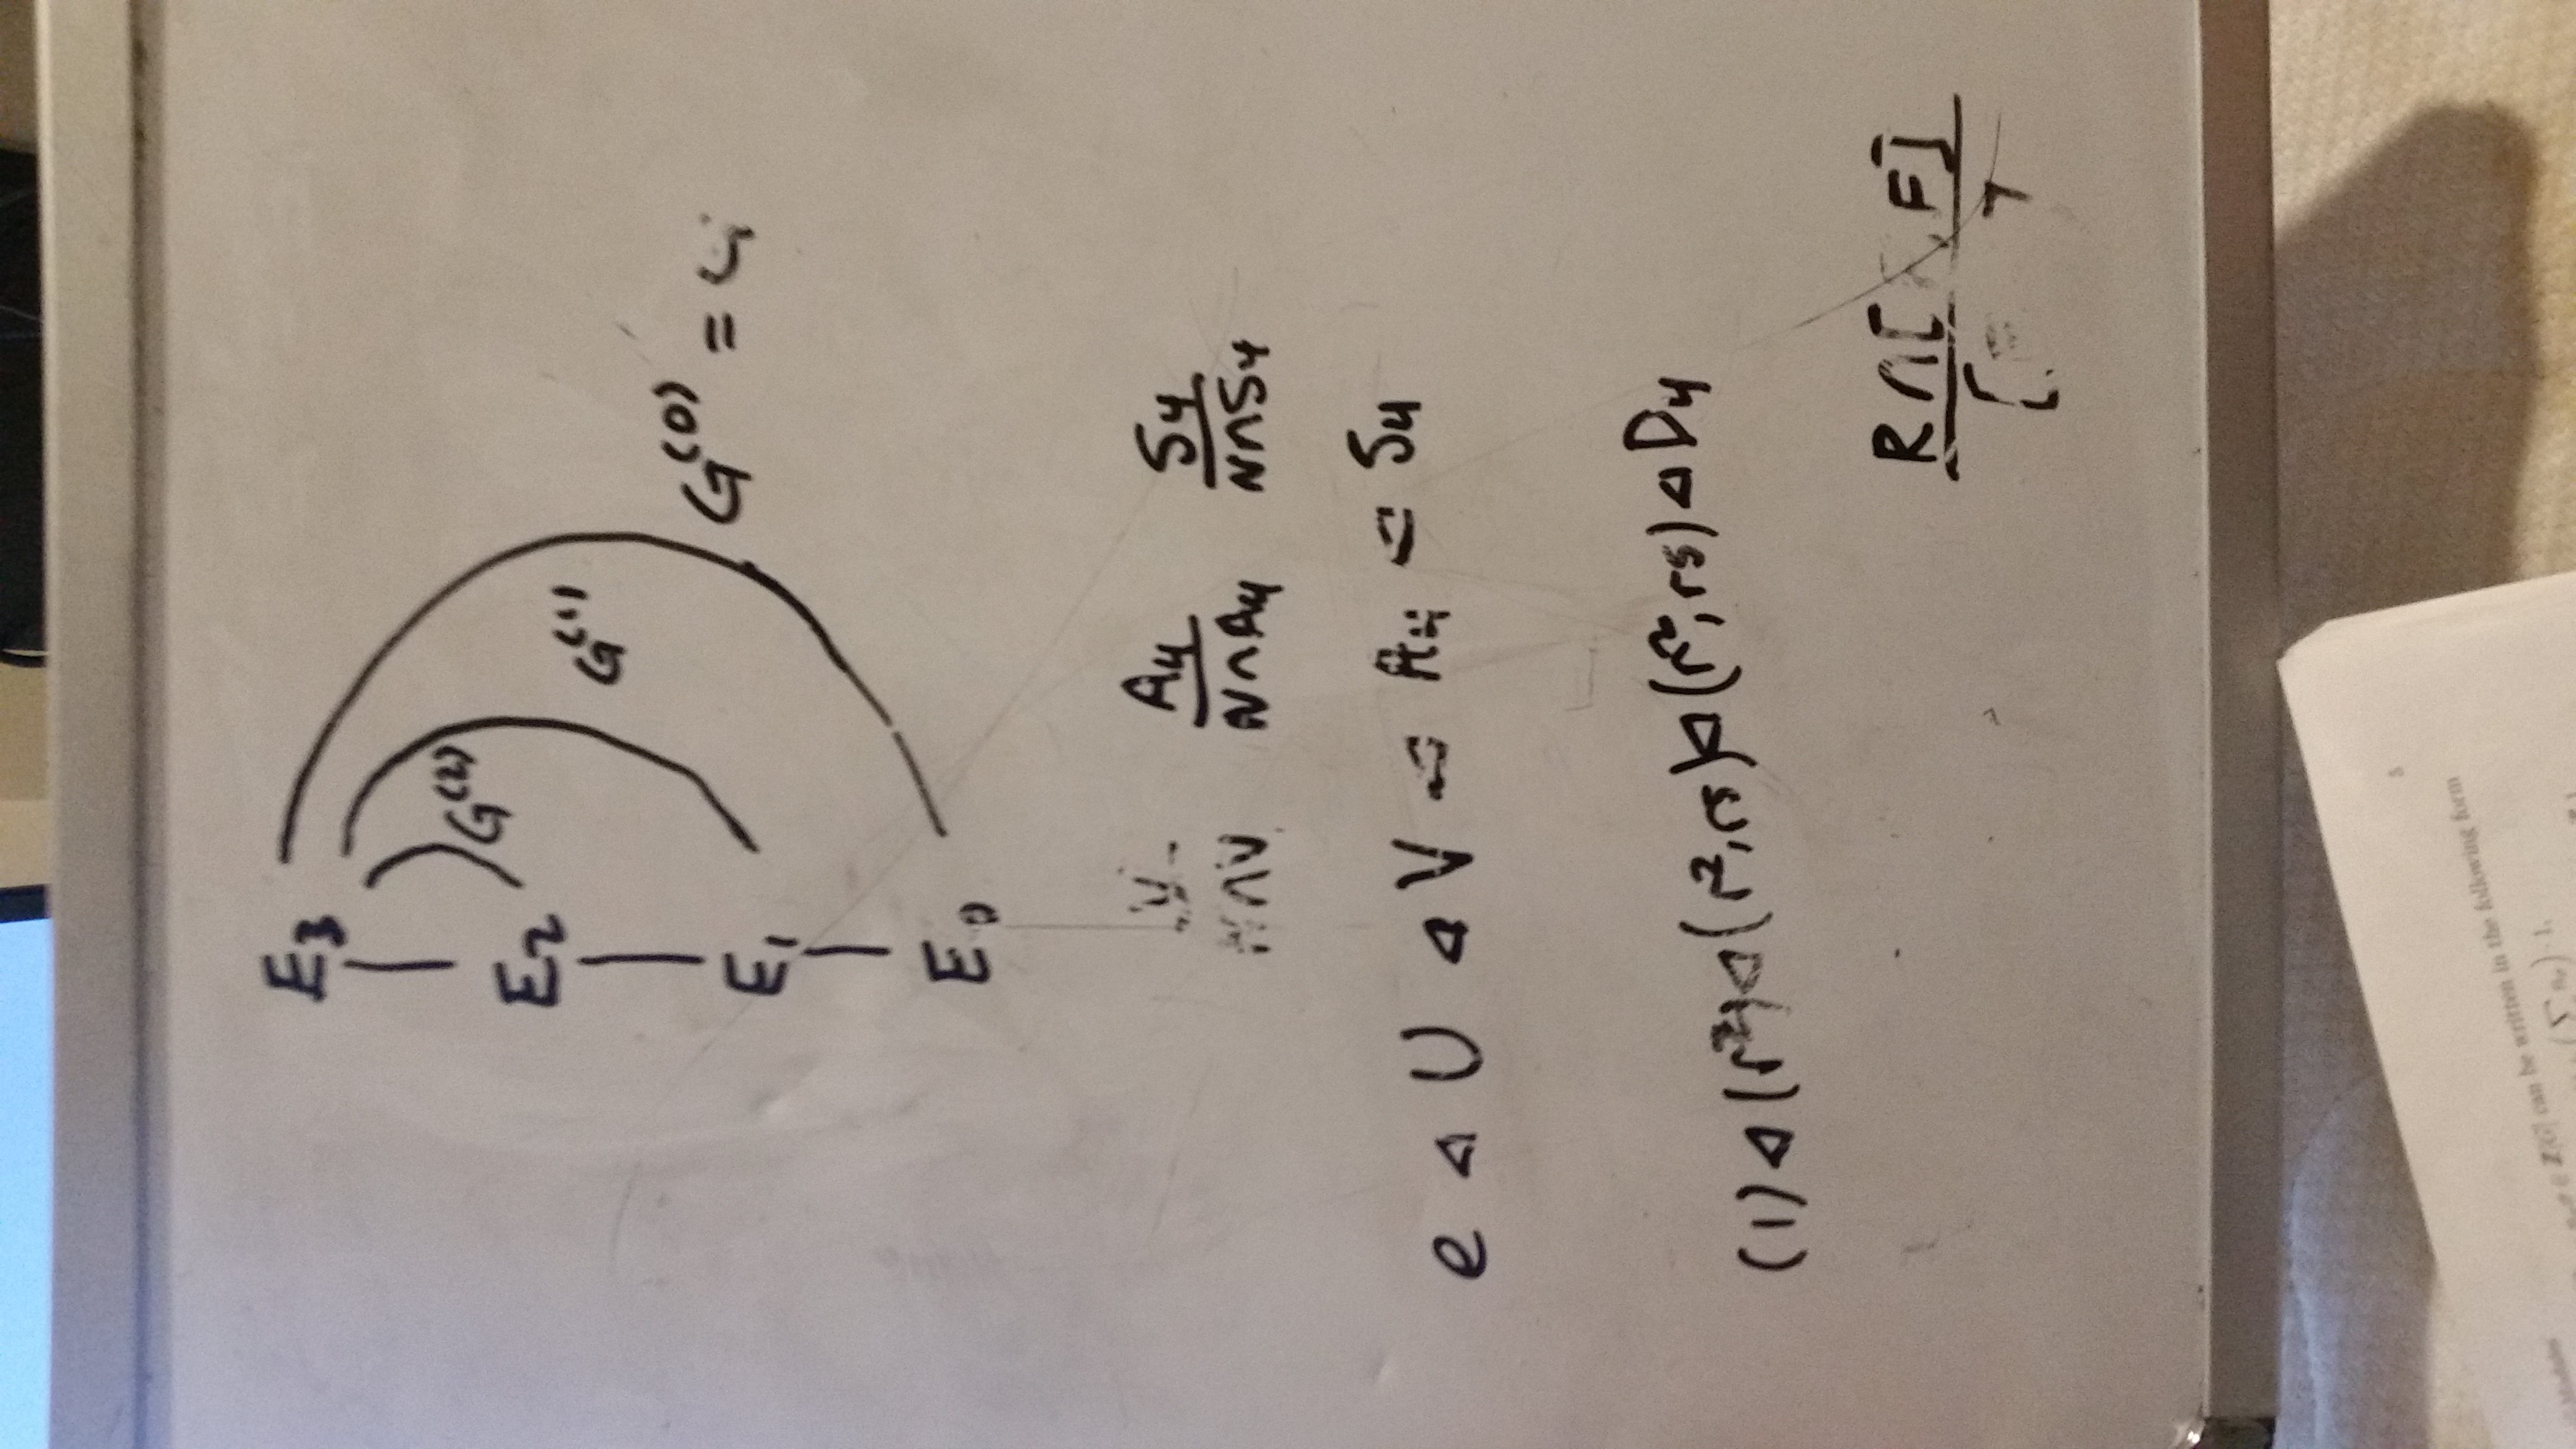 E₃
G⁽²⁾
E₂
G⁽¹⁾
G⁽⁰⁾ =
E₁
E₀
V A₄ S₄
N∩V N∩A₄ N∩S₄
e ◁ U ◁ V ◁ A₄ ◁ S₄
(1) ◁ (r²) ◁ (r², rs) ◁ (r², rs) ◁ D₄
R ∩ [ , F]
[
5
Modules
∈ Z[G] can be written in the following form